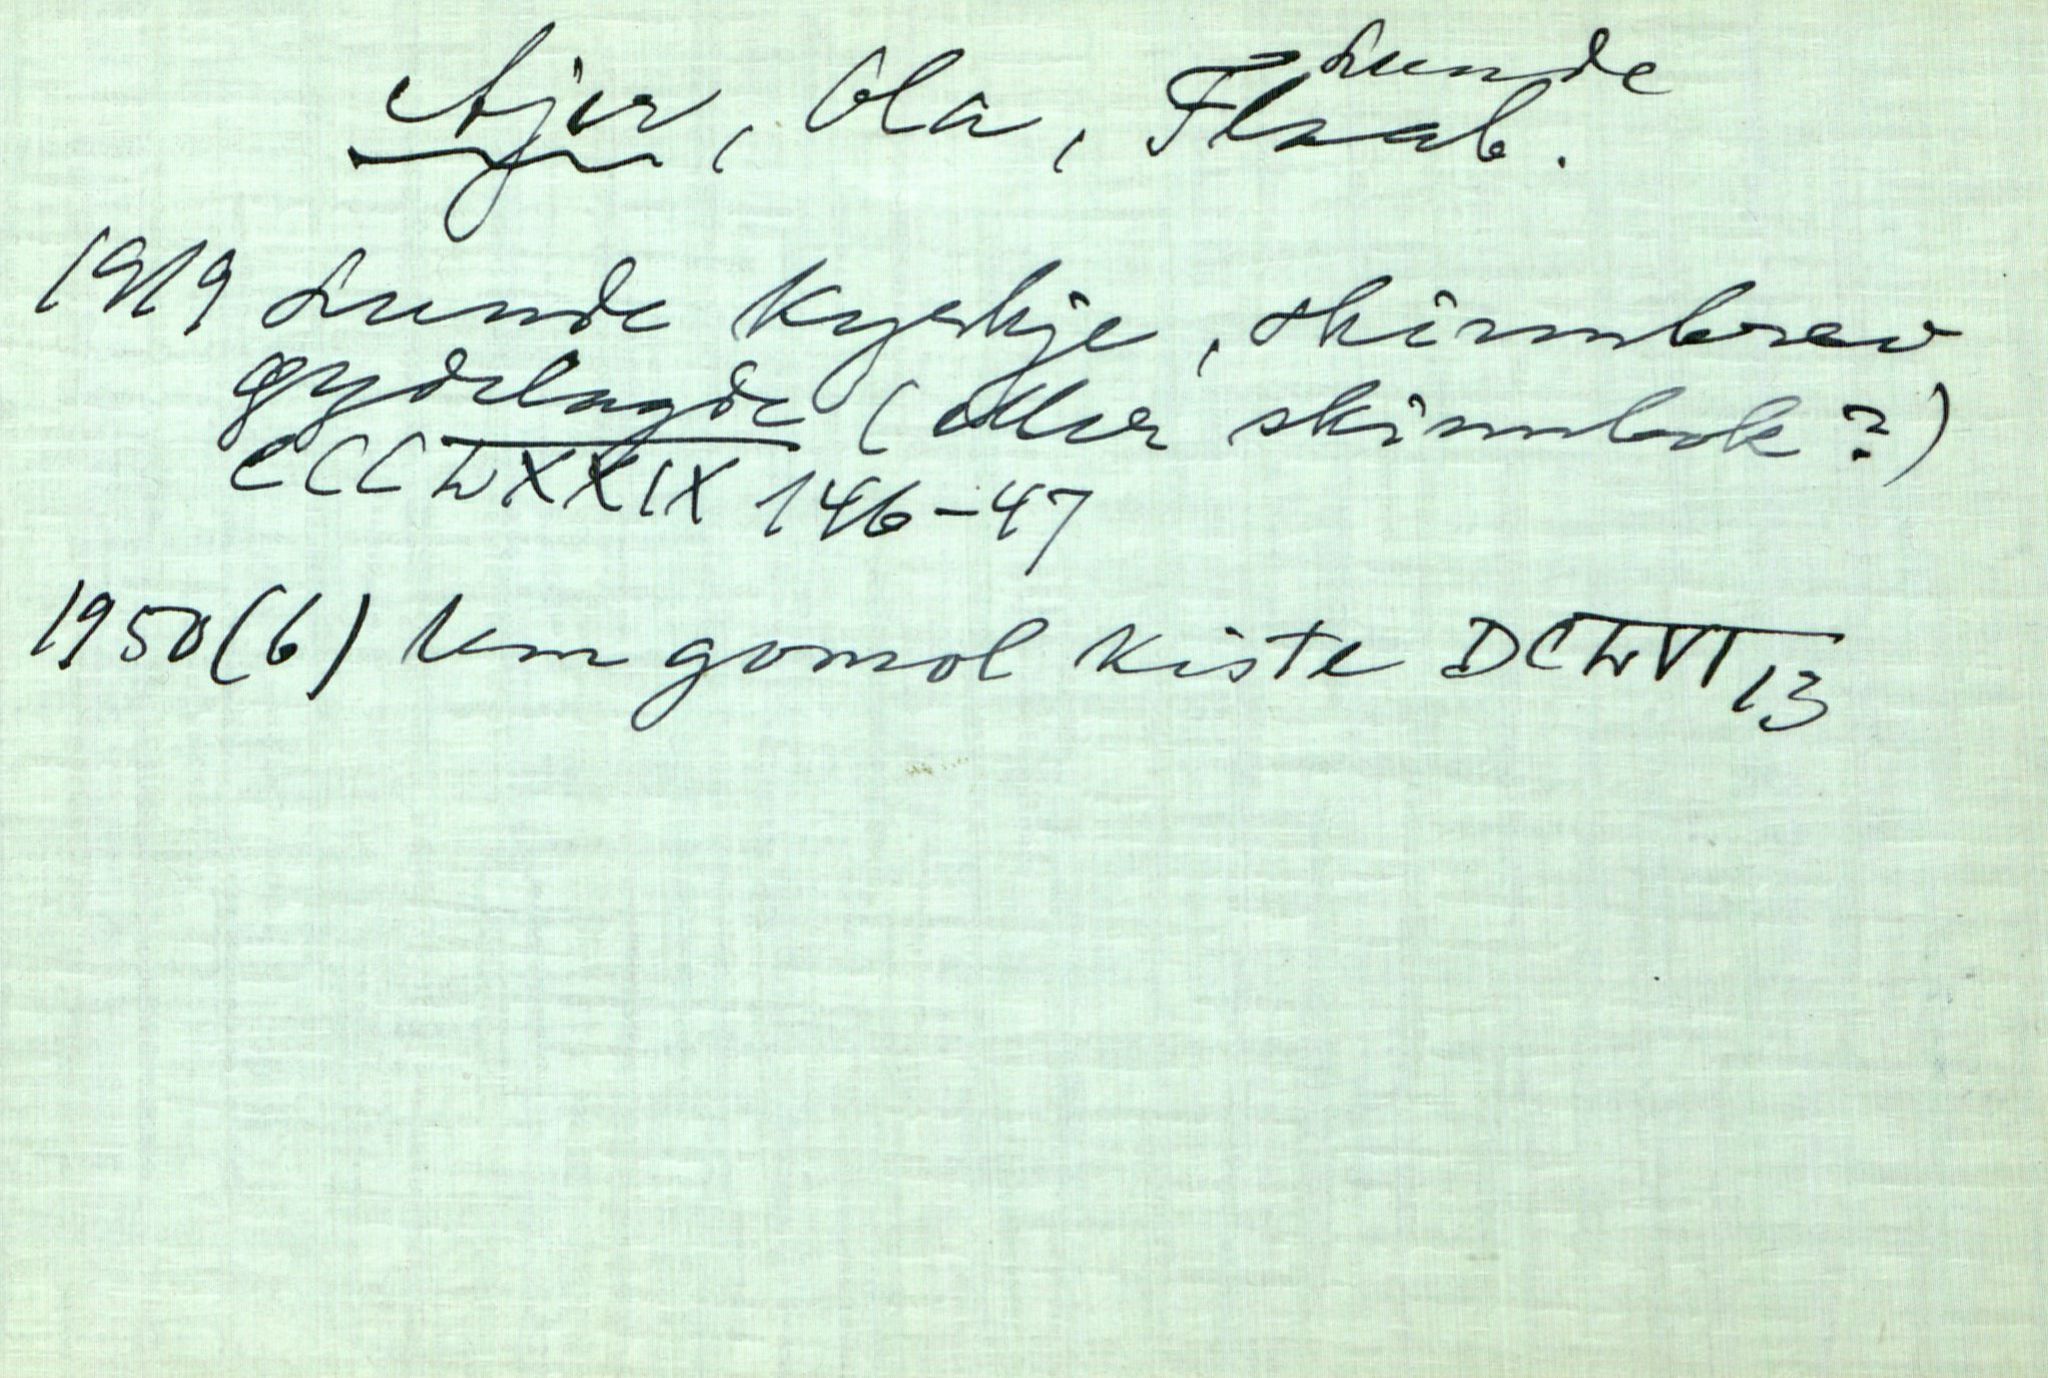 Lunde
Ajer, Ola, Flaab.
1919 Lunde Kyrkje, skinnbrev
øydelagde (eller skinnbok?)
CCCLXXXIX 146-47
1950(6) Um gomol Kiste DCLVI 13